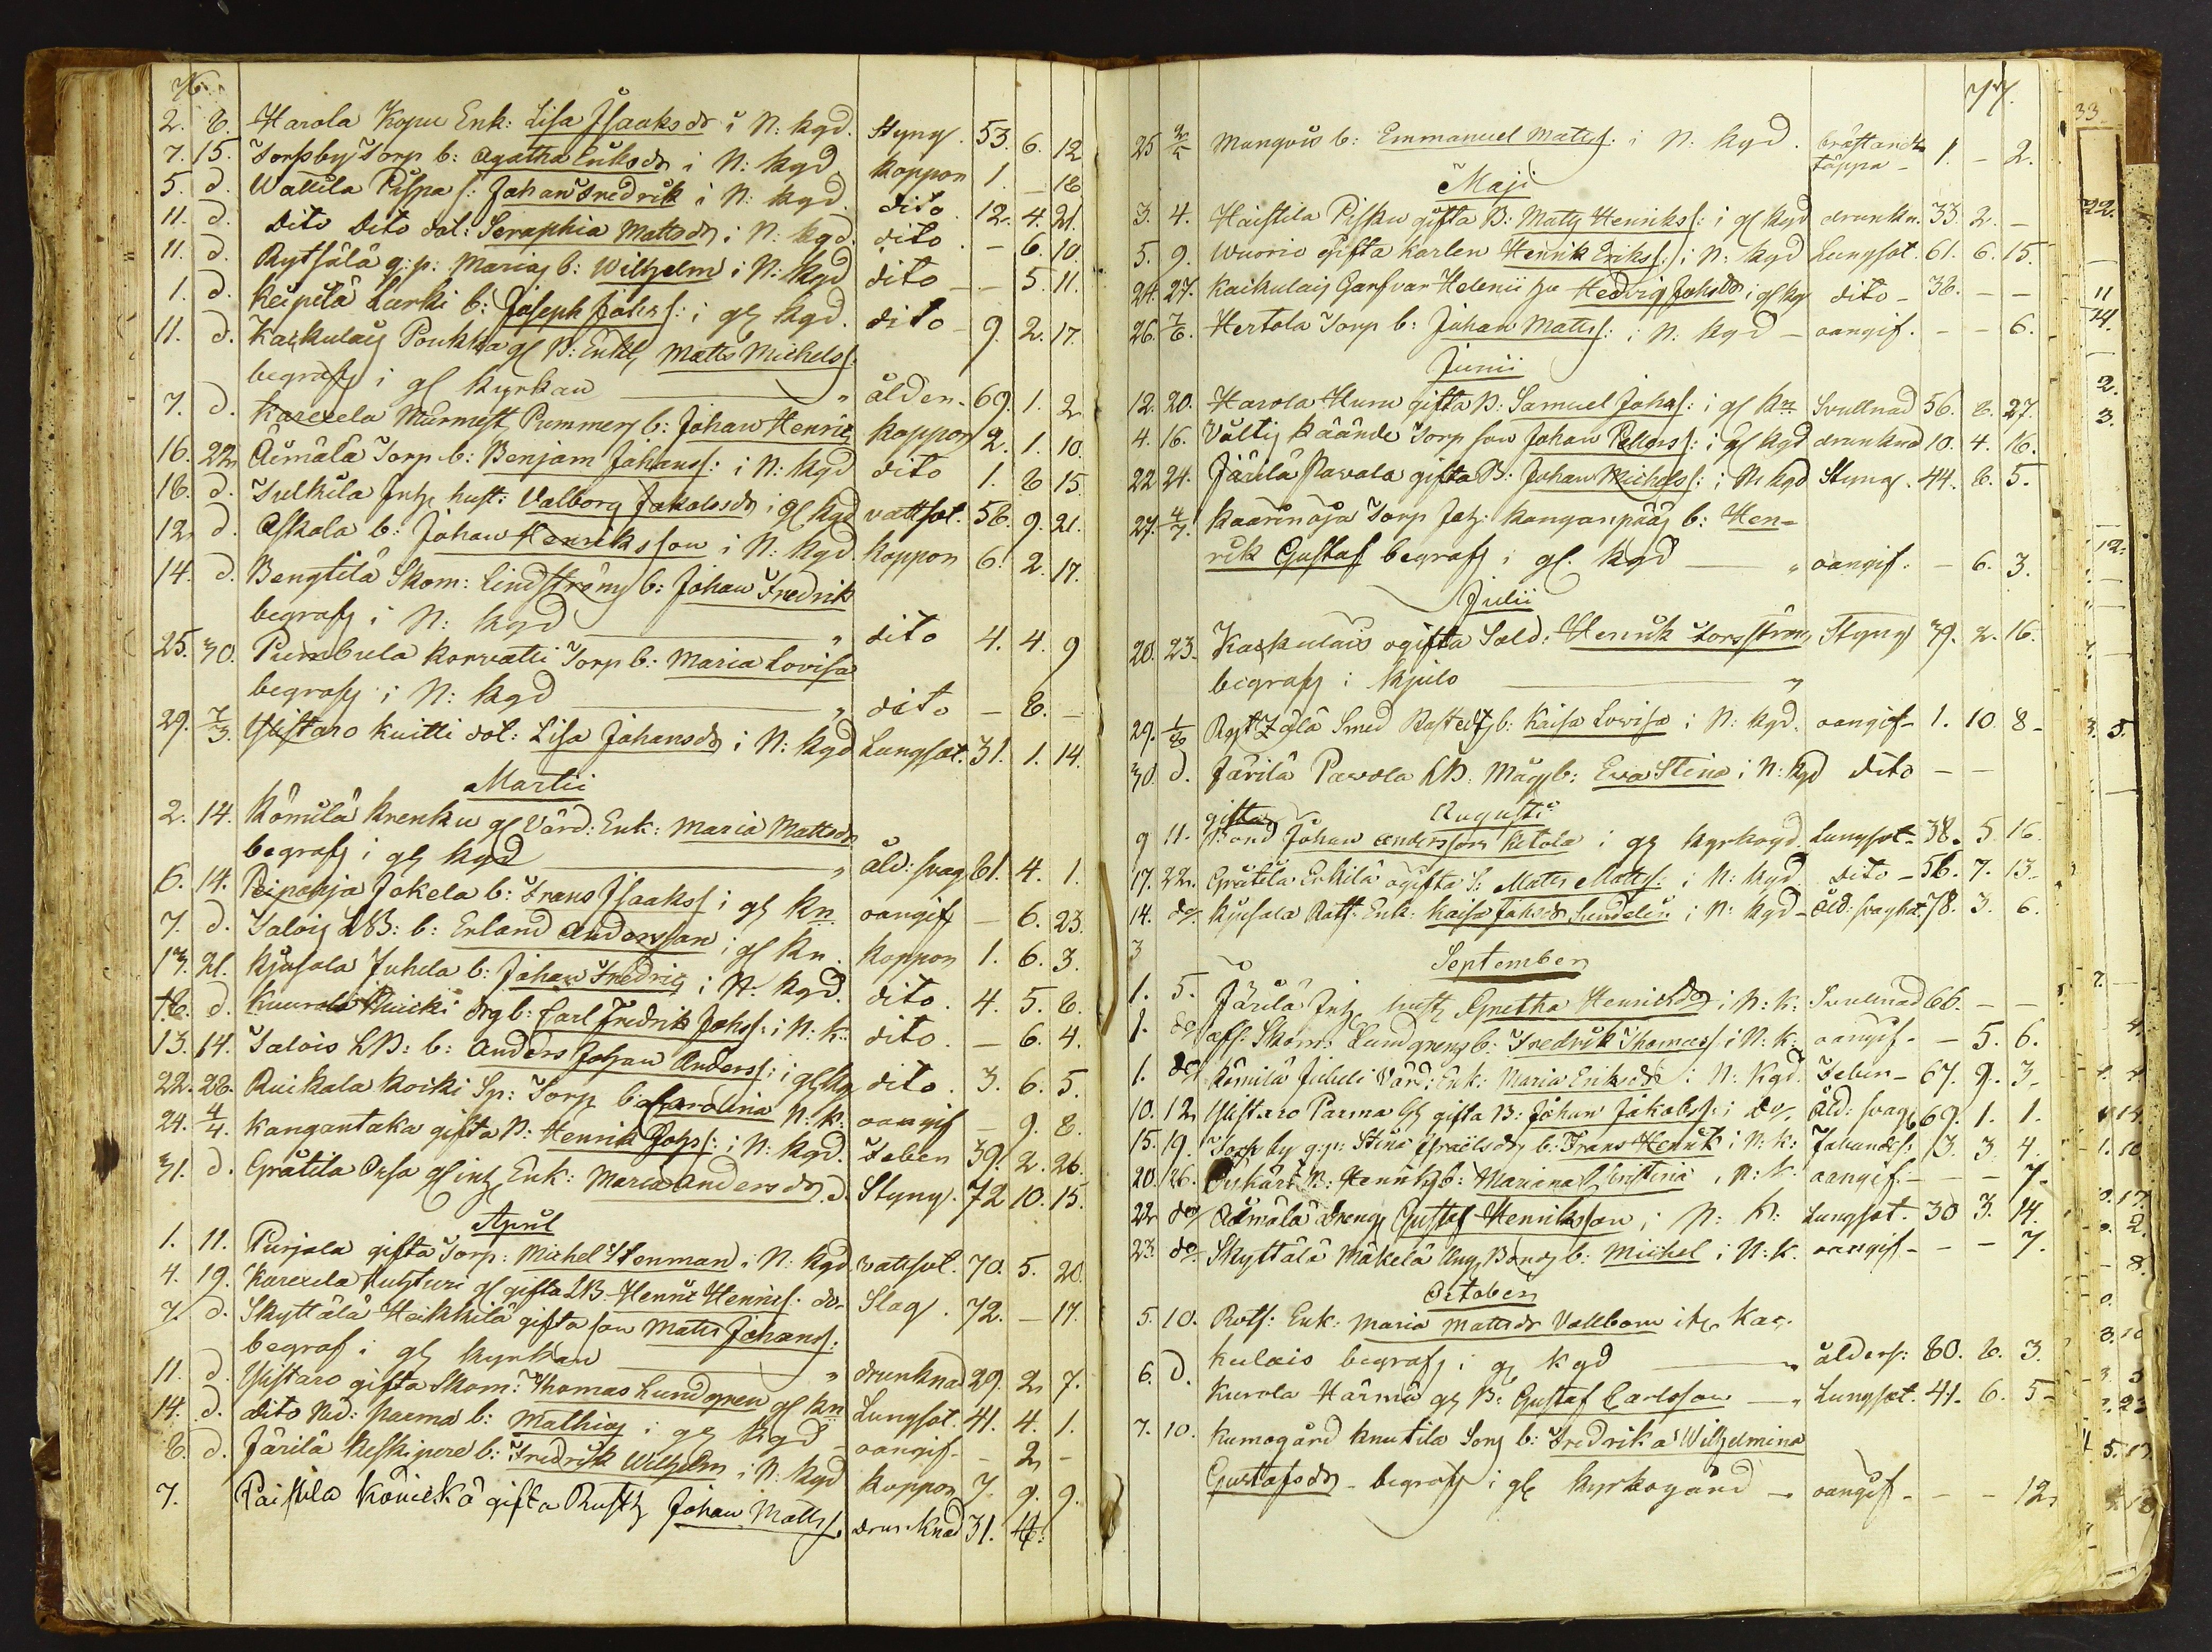 76.
2. 8. Harola Kopu Enk: Lisa Isaaksdr i N: kgd. Styng. 53. 6. 12
7. 15. Torpsby Torp b: Agatha Eriksdr i N: kgd koppon 1. – 18
5. d. Wallila Pispa s: Johan Fredrik i N: kgd. dito 12. 4. 21.
11. d. Dito Dito dot: Seraphia Mattsdr i N: kgd. dito. – 6. 10.
11. d. Rytsälä q: p: Marias b: Wilhelm i N: kgd dito – – 5. 11.
1. d. Keipilä Larki b: Joseph Johss: i gl kgd. dito – 9. 2. 17.
11. d. Kaukulais Poukka gl B: Enkl Matts Michelss.
begrafs i gl kyrkan " ålder. 69. 1. 2
7. d. Karexela Murmest Pummers b: Johan Henric koppor 2. 1. 10.
16. 22. Äimälä Torp b: Benjam Johanss: i N: kgd dito 1. 8 15.
18. d. Sulkila Inhs hust: Valborg Jakobsdr i gl kgd vattsot. 58. 9. 21.
12 d. Askala b: Johan Henriksson i N: kgd. koppon 6. 2. 17.
14. d. Bengtilä Skom: Lindströms b: Johan Fredrik
begrafs i N: kgd " dito 4. 4. 9
25. 30. Pumbula Korvatti Torp b: Maria Lovisa
begrafs i N: kgd " dito – 8. –
29. 7/3. Ylistaro Kuitti dot: Lisa Johansdr i N: kgd Lungsot. 31. 1. 14.
Martii
2. 14. Kömilä Krenku gl Värd: Enk: Maria Mattsdr
begrafs i gl kgd " åld: svag 61. 4. 1.
6. 14. Peipohja Jakela b: Frans Isaakss i gl kn oangif – 6. 23.
7. d. Talois LB: b: Erland Andersson i gl kn. koppon 1. 6. 3.
13. 21. Kjusala Juhela b: Johan Fredric i N: kgd. dito. 4. 5. 8.
18. d. Kuurola Knicki drg b: Carl Fredrik Johss: i N. k: dito. – 6. 4.
13. 14. Talois LB: b: Anders Johan Anderss: i gl kg dito. 3. 6. 5.
22. 28. Ruikala Koiki Sp: Torp b: Carolina N: k: oangif – 9. 8.
24. 4/4. Kangantaka gifta B: Henrik Johss: i N: kgd. Feber 39. 2. 26.
31. d. Grätila Orsa gl inh Enk: Maria Andersdr. d. Styng. 72 10. 15.
April
1. 11. Purjala gifta Torp: Michel Stenman i N: kgd. vattsot. 70. 5. 20
4. 19. Karexela Huhturi gl gifta LB: Henric Henrics. do Slag. 72. – 17.
7. d. Skyttälä Heikkilä gifta son Matts Johanss:
begraf i gl kyrkan " drunknad 29. 2. 7.
11. d. Ylistaro gifta Skom: Thomas Lundgren gl kn Lungsot. 41. 4. 1.
14. d. dito Ned: parma b: Mathias i gl kgd oangif. – 2. –
8. d. Järilä Keskipere b: Fredrik Wilhelm i N: kgd koppor 7. 9. 9.
7. Paistila Könickä gifta Rusth Johan Mattss. drunknad 31. 4.
77.
25 2/5 Mangois b: Emmanuel Mattss: i N: kgd. bråttande
täppa – 1. – 2.
Maji
3. 4. Haistila Pisku gifta B: Mats Henrikss: i gl kgd drunkn. 33. 2. –
5. 9. Wuorio ogifta karlen Henrik Erikss: i N: kgd Lungsot. 61. 6. 15.
24. 27. Kaikulais Garfvar Helenii hu Hedvig Johsdr i gl kg dito – 38. – –
26. 7/6. Hertola Torp b: Johan Mattss: i N: kgd – oangif. – – 6.
Junii
12. 20. Harola Huru gifta B: Samuel Johss: i gl kn Svullnad 56. 8. 27.
4. 16. Vältis Päände Torp son Johan Pehrss: i gl kgd drunknad 10. 4. 16.
22 24. Järilä Pavola gifta B: Johan Michelss: i N: kgd Styng. 44. 8. 5.
27. 4/7. Kaarinoja Torp Joh: Kanganpääs b: Hen-
rik Gustaf begrafs i gl. kgd " oangif. – 6. 3.
Julii
20. 23. Kaukulais ogifta Sold: Henrik Forsström Styng 39. 2. 16.
begrafs i Kjulo "
29. 1/8 Rytzälä Smed b: Kaisa Lovisa i N: kgd. oangif – 1. 10 8 –
30 d. Järilä Pawola LB: Mågs b: Eva Stina i N: kgd dito – –
Augusti
9 11. gifta Bond Johan Andersson Ketola i gl kyrkogd. Lungsot – 38. 5. 16.
17. 22. Grätila Erkilä ogifta S: Matts Mattss: i N: kgd dito – 56. 7. 13.
14. do Kjusala Rotf: Enk: Kaisa Johsdr Sundelin i N: kgd – åld: svaght. 78. 3. 6.
3
September
1. 5. Järilä Inh hust Gretha Henricsdr i N: k: Svullnad 66. – –
1. do afl: Skom: Lundgrens b: Fredrik Thomass i N: k: oangif. – 5. 6.
1. do Kömilä Juheli Värd: Enk: Maria Eriksdr i N: kgd. Feber – 67. 9. 3.
10. 12 Ylistaro Parma gl gifta B: Johan Jakobss: i do. Åld: svag 69. 1. 1.
15. 19. Torpby q: p: Stina Israelsdr b: Frans Henrik i N: k: 13. 3. 4.
20. 26. B: Henriks b: Mariana Christina i N: k. oangif. – – 7.
22. do Äimälä dreng Gustaf Henriksson i N: k: Lungsot. 30 3. 14.
23. do. Skyttälä Mäkelä Ung Bonds b: Michel i N: k. oangif – – – 7.
October
5. 10. Rots: Enk: Maria Mattsdr Vallbom Kau-
kulais begrafs i gl kgd " ålders: 80. 8. 3.
6. d. Kurola Härmä gl B: Gustaf Carlsson " Lungsot. 41. 6. 5
7. 10. Kumogård Knutila Torp b: Fredrika Wilhelmina
Gustafsdr – begrafs i gl kyrkogård – oangif. – – 12